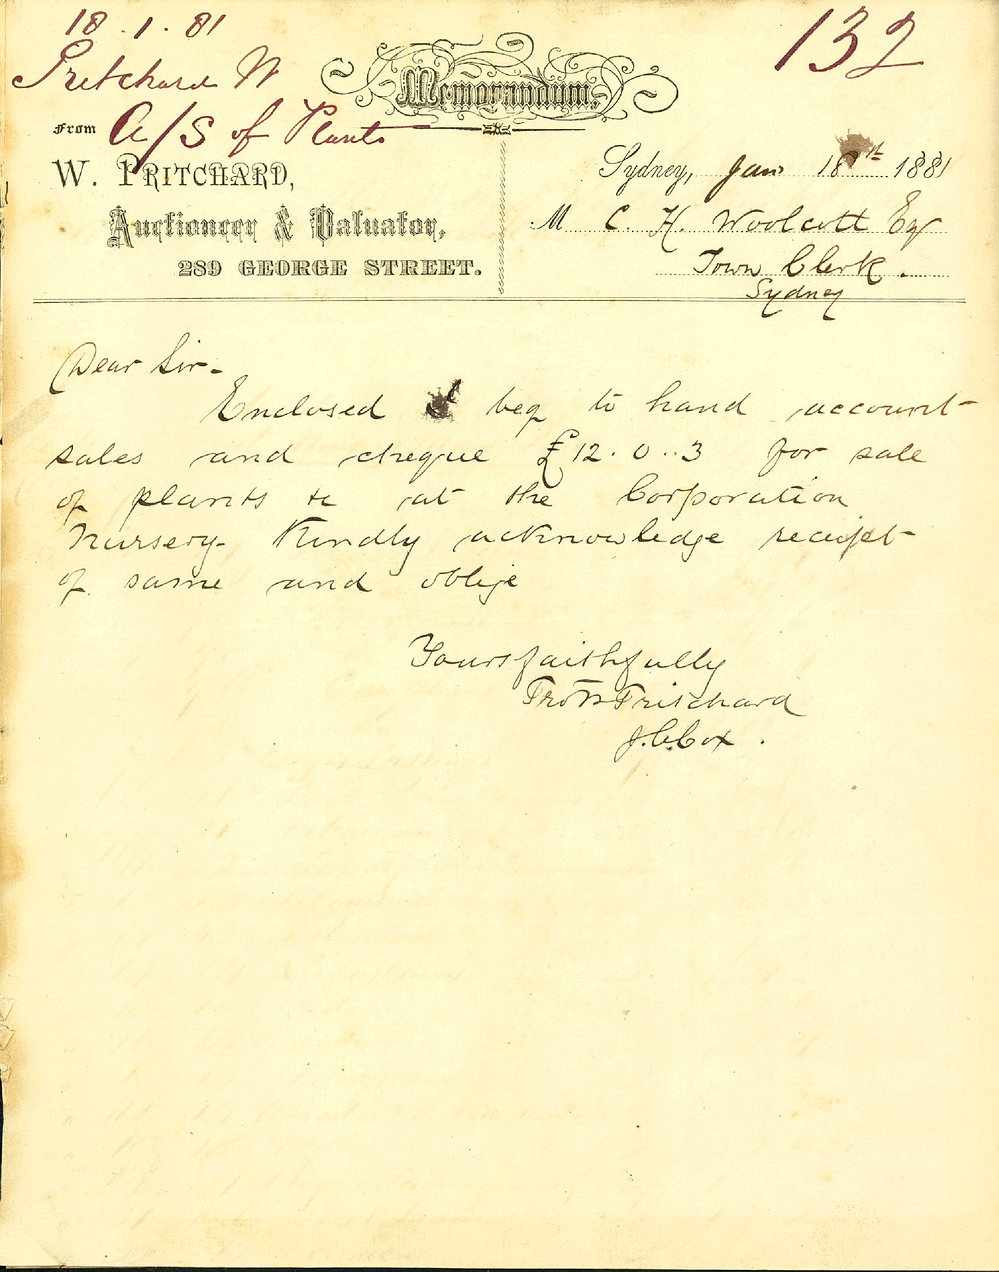 18.1.81
Pritchard W
A/S of Plants
132
Memorandum.
From
W. PRITCHARD,
Auctioneer & Valuator,
289 GEORGE STREET.
Sydney, Jan 18th 1881
M C. H. Woolcott Esq
Town Clerk.
Sydney
Dear Sir-
Enclosed I beg to hand account
sales and cheque £12.0..3 for sale
of plants &c at the Corporation
Nursery. Kindly acknowledge receipt
of same and oblige
Yours faithfully
Pro W Pritchard
J.C.Cox.